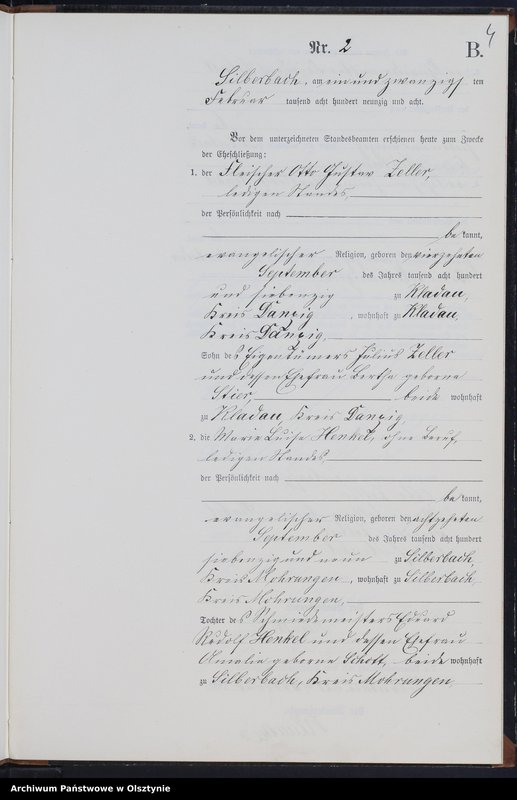 4
Nr. 2 B.
Silberbach, am ein und zwanzigs ten
Februar tausend acht hundert neunzig und acht.
Vor dem unterzeichneten Standesbeamten erschienen heute zum Zwecke
der Eheschließung:
1. der Fleischer Otto Gustav Zeller,
ledigen Standes
der Persönlichkeit nach
be kannt,
evangelischer Religion, geboren den vierzehnten
September des Jahres tausend acht hundert
und siebenzig zu Kladau,
Kreis Danzig, wohnhaft zu Kladau,
Kreis Danzig,
Sohn des Eigentümers Julius Zeller
und dessen Ehefrau Bertha geborne
Stier, beide wohnhaft
zu Kladau, Kreis Danzig.
2. die Marie Luise Henkel, ohne Beruf,
ledigen Standes
der Persönlichkeit nach
be kannt,
evangelischer Religion, geboren den achtzehnten
September des Jahres tausend acht hundert
siebenzig und neun zu Silberbach,
Kreis Mohrungen, wohnhaft zu Silberbach,
Kreis Mohrungen,
Tochter des Schmiedemeisters Eduard
Rudolf Henkel und dessen Ehefrau
Amalie geborne Schott, beide wohnhaft
zu Silberbach, Kreis Mohrungen,
Archiwum Państwowe w Olsztynie